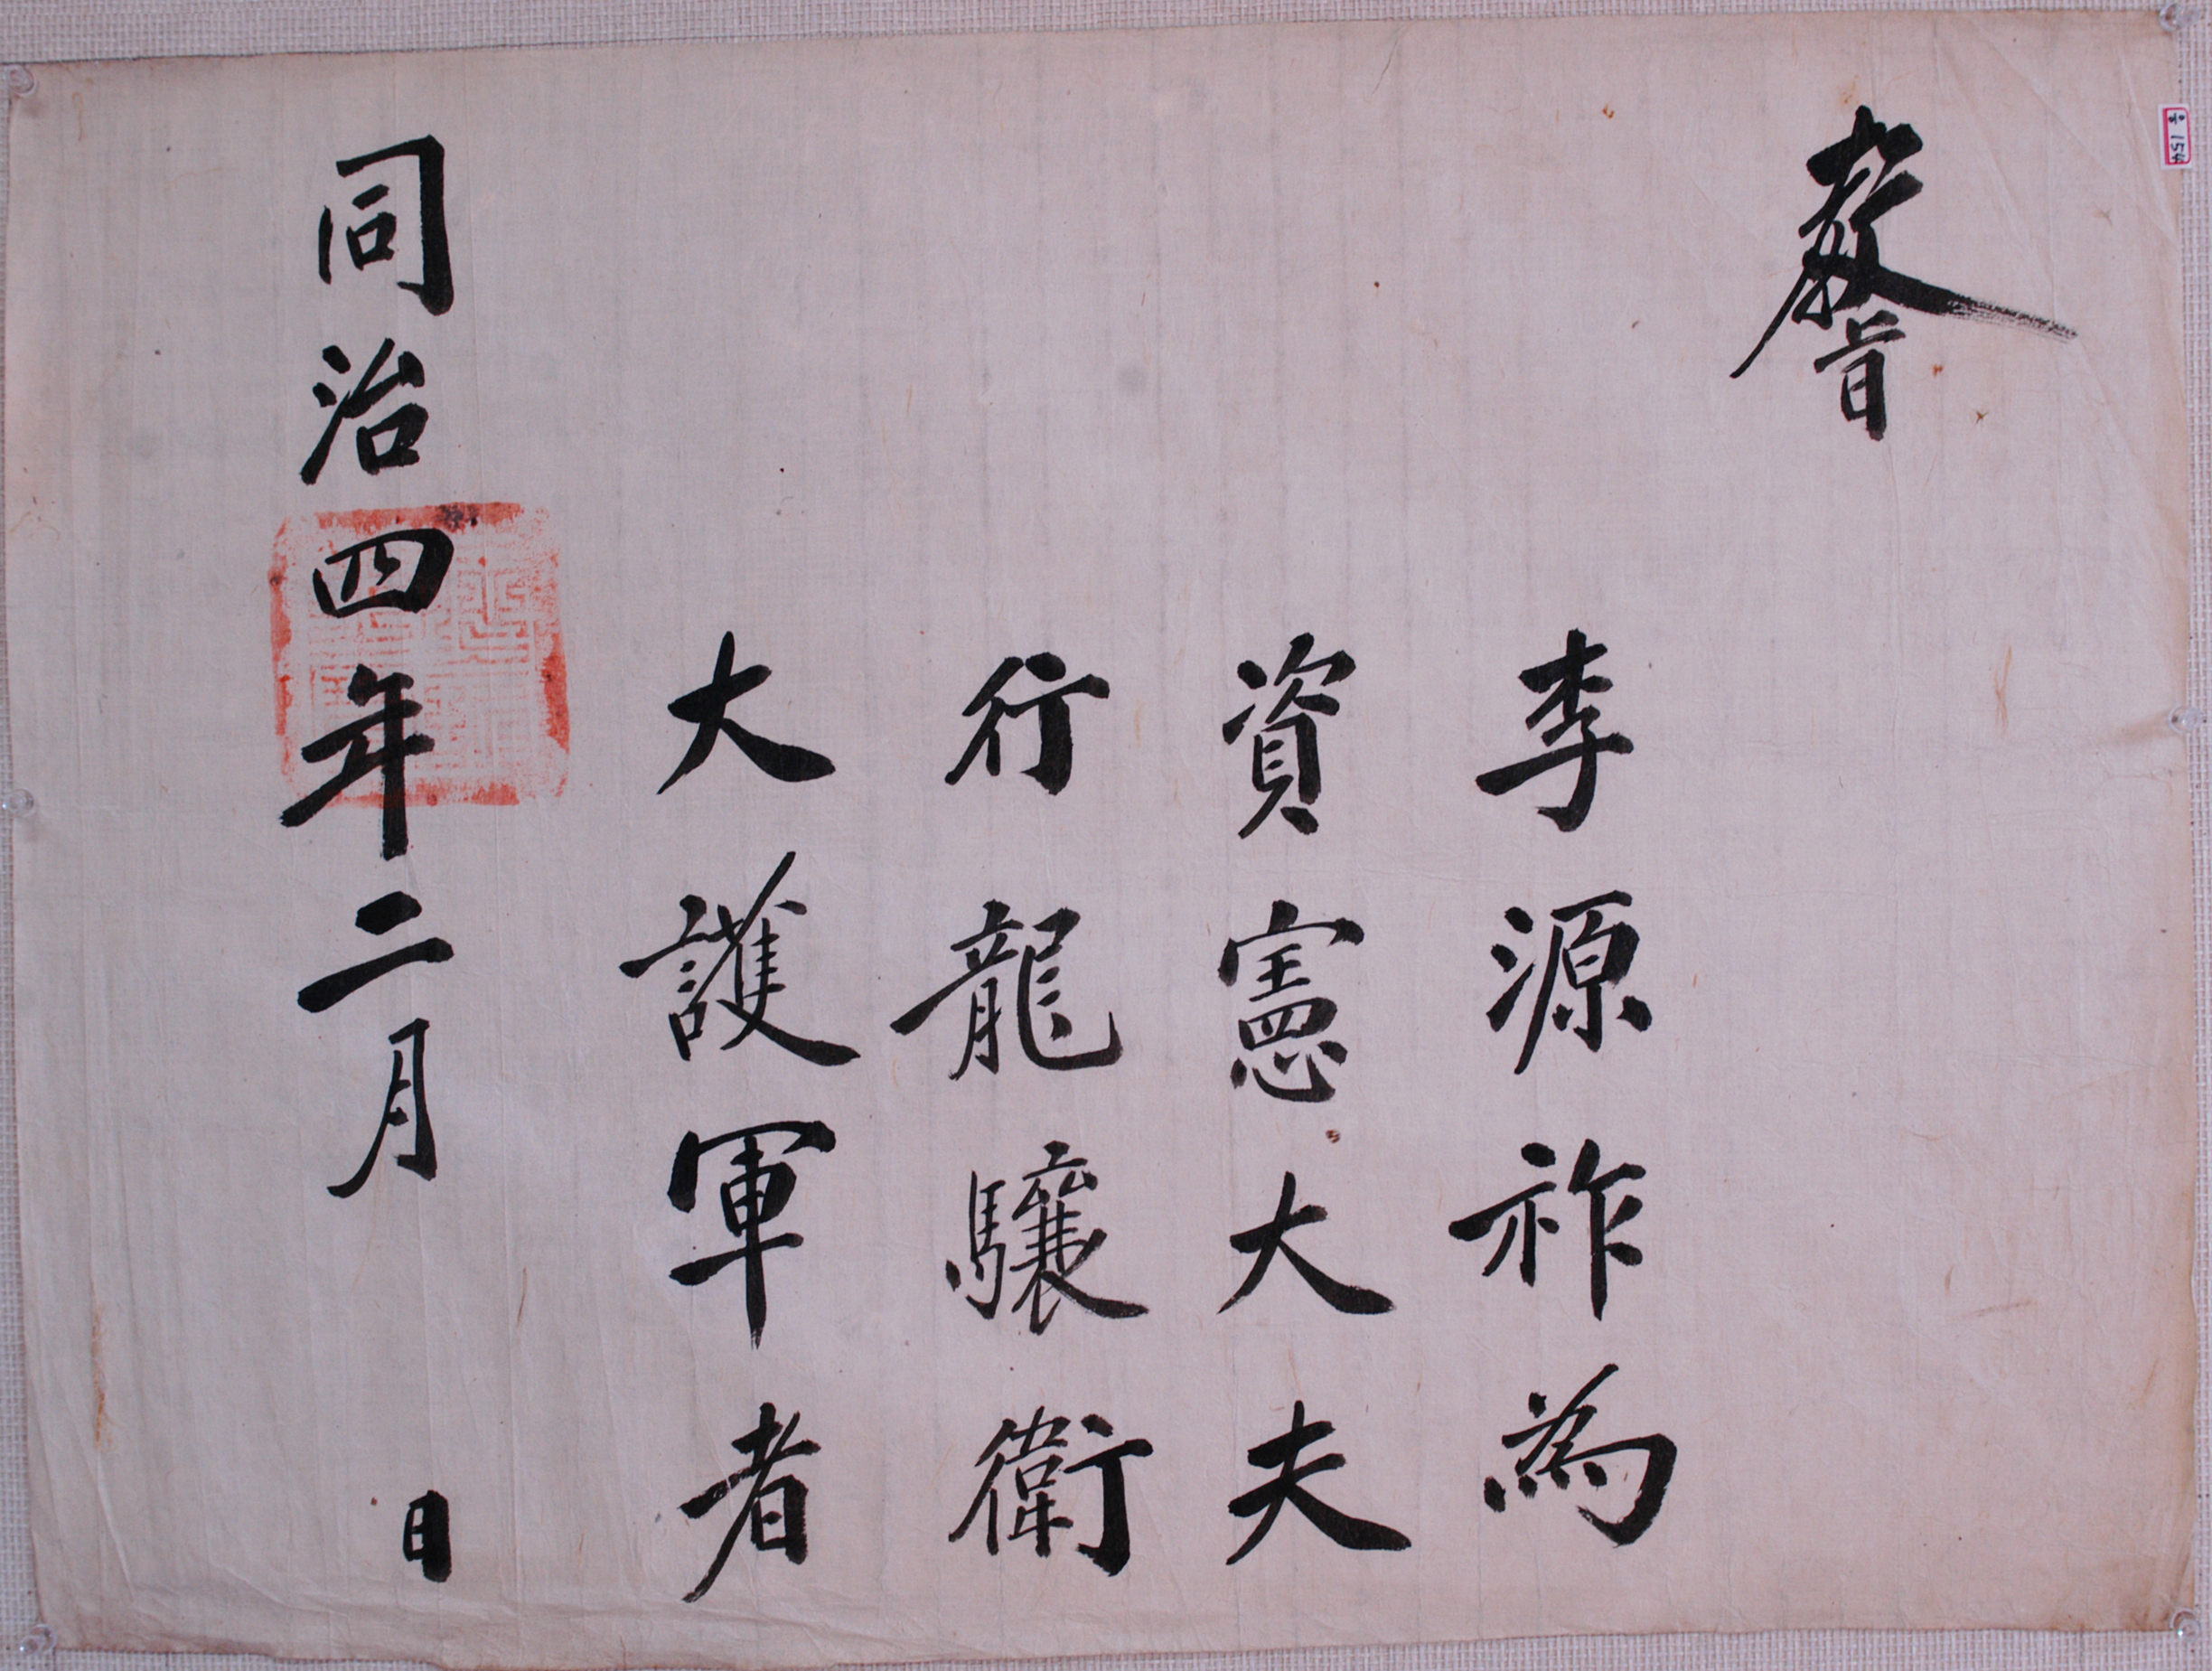 敎旨
李源祚為
資憲大夫
行龍驤衛
大護軍者
同治四年二月 日
154